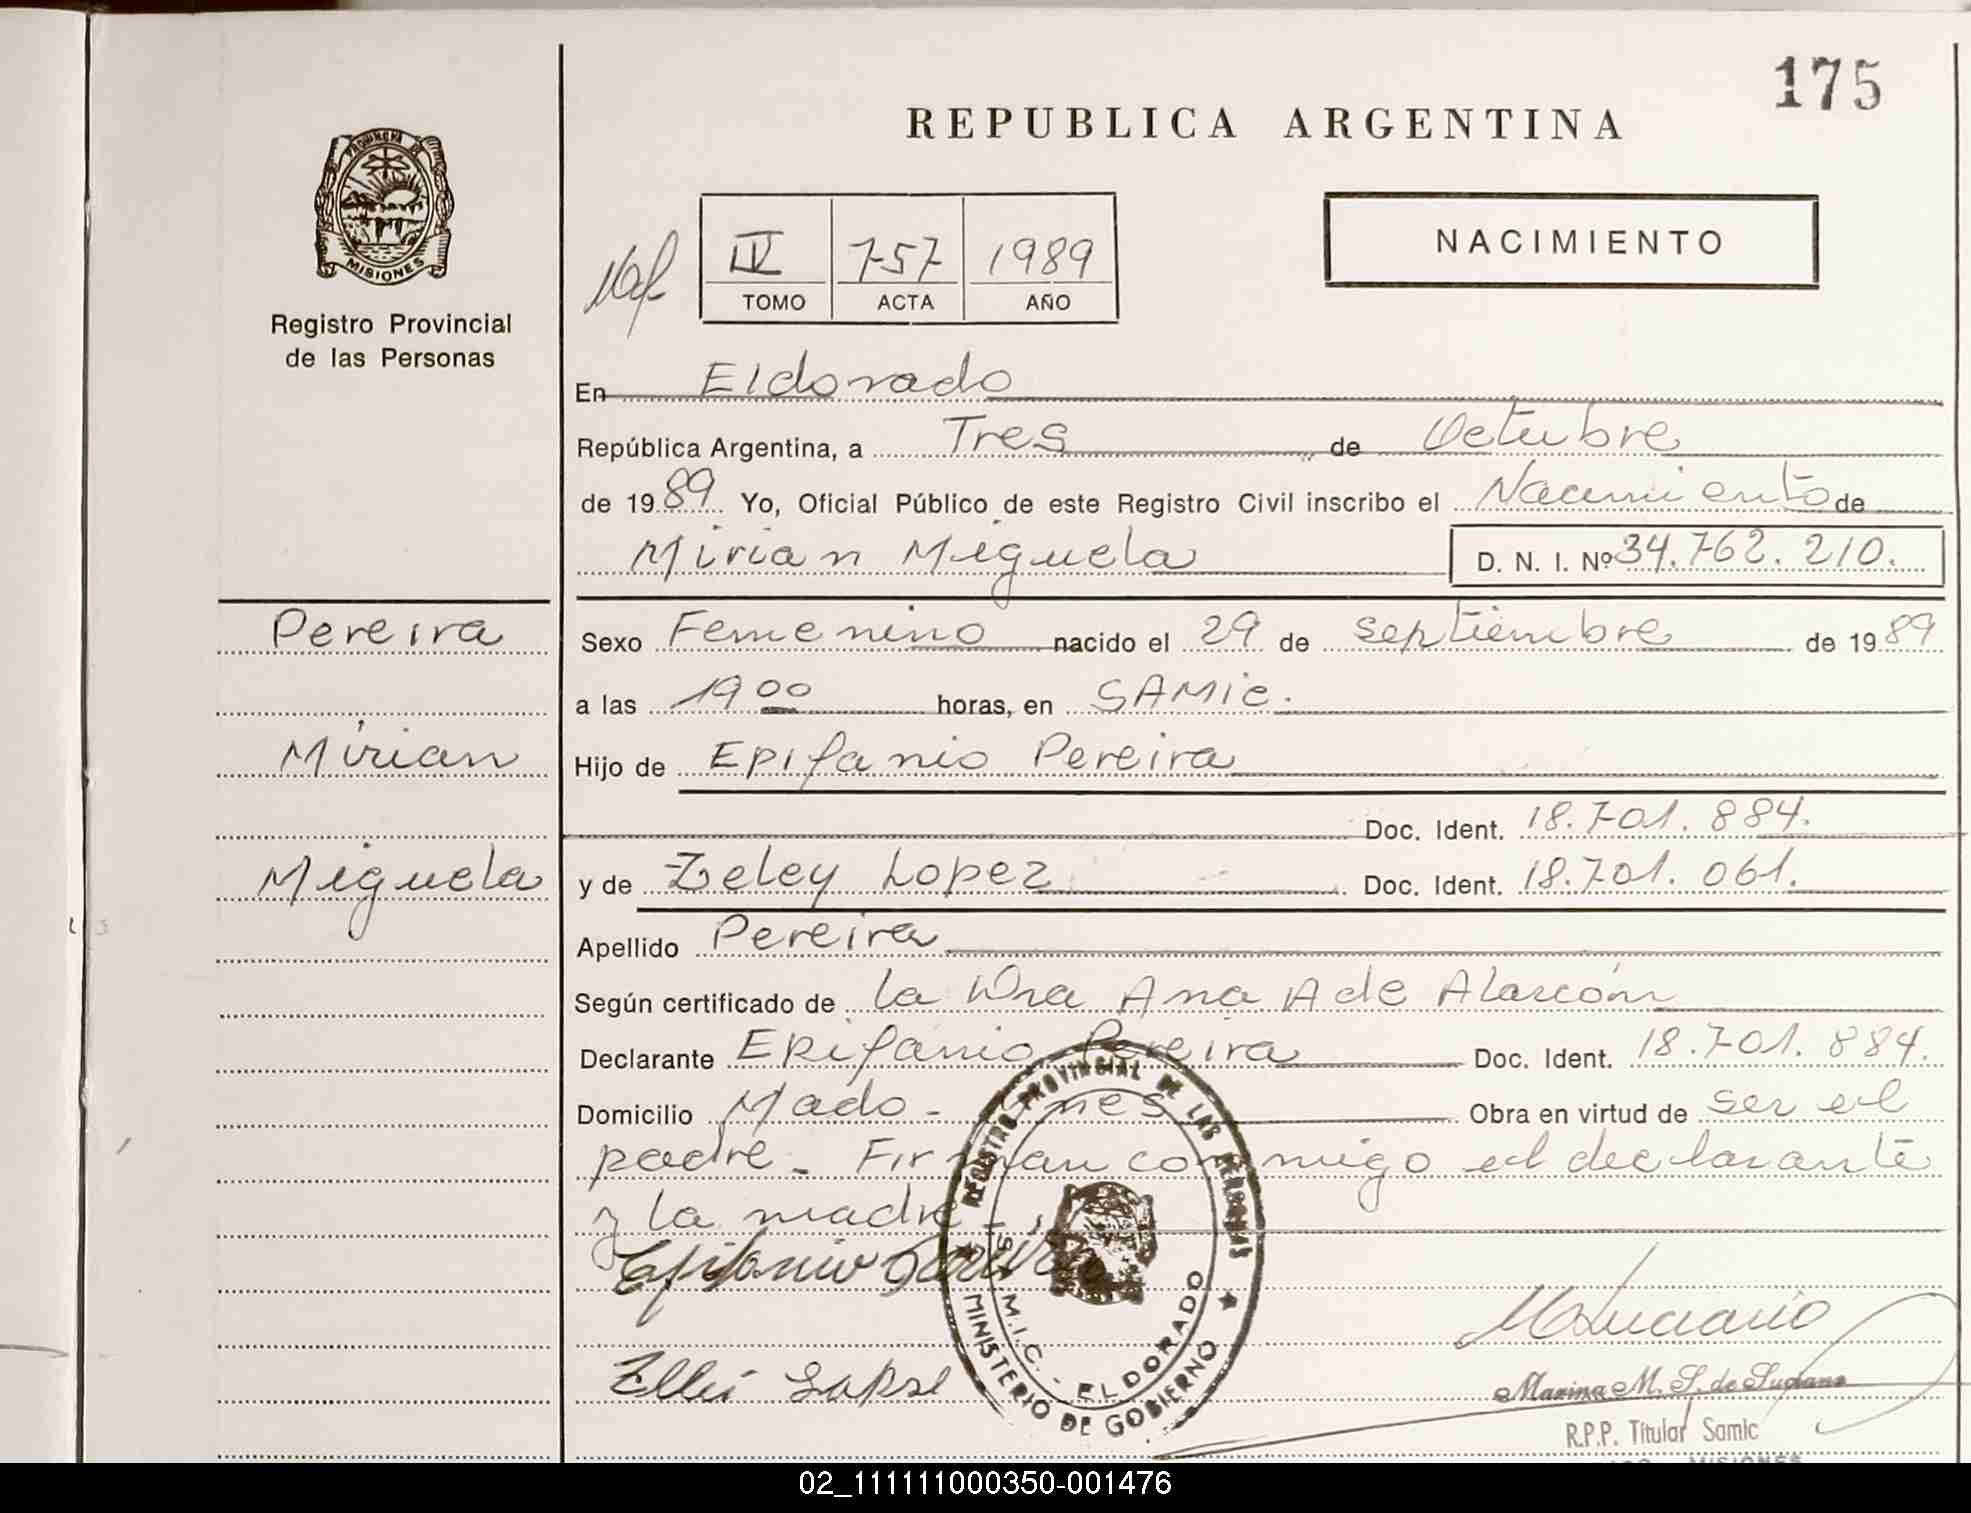 175
REPUBLICA ARGENTINA
PROVINCIA DE
MISIONES
Registro Provincial
de las Personas
IV 757 1989
TOMO ACTA AÑO
NACIMIENTO
En Eldorado
República Argentina, a Tres de Octubre
de 1989 Yo, Oficial Público de este Registro Civil inscribo el Nacimiento de
Mirian Miguela D. N. I. Nº 34.762.210.
Pereira
Mirian
Miguela
Sexo Femenino nacido el 29 de septiembre de 1989
a las 19 00 horas, en SAMIC.
Hijo de Epifanio Pereira
Doc. Ident. 18.701.884.
y de Zeley Lopez Doc. Ident. 18.701.061.
Apellido Pereira
Según certificado de la Dra Ana A de Alarcón
Declarante Epifanio Pereira Doc. Ident. 18.701.884.
Domicilio Mado - Mnes Obra en virtud de ser el
padre - Firman conmigo el declarante
y la madre -
Epifanio Pereira
REGISTRO PROVINCIAL DE LAS PERSONAS
MINISTERIO DE GOBIERNO
S.A.M.I.C. - ELDORADO
M Luciano
Marina M. S. de Luciano
R.P.P. Titular Samic
MISIONES
02_111111000350-001476